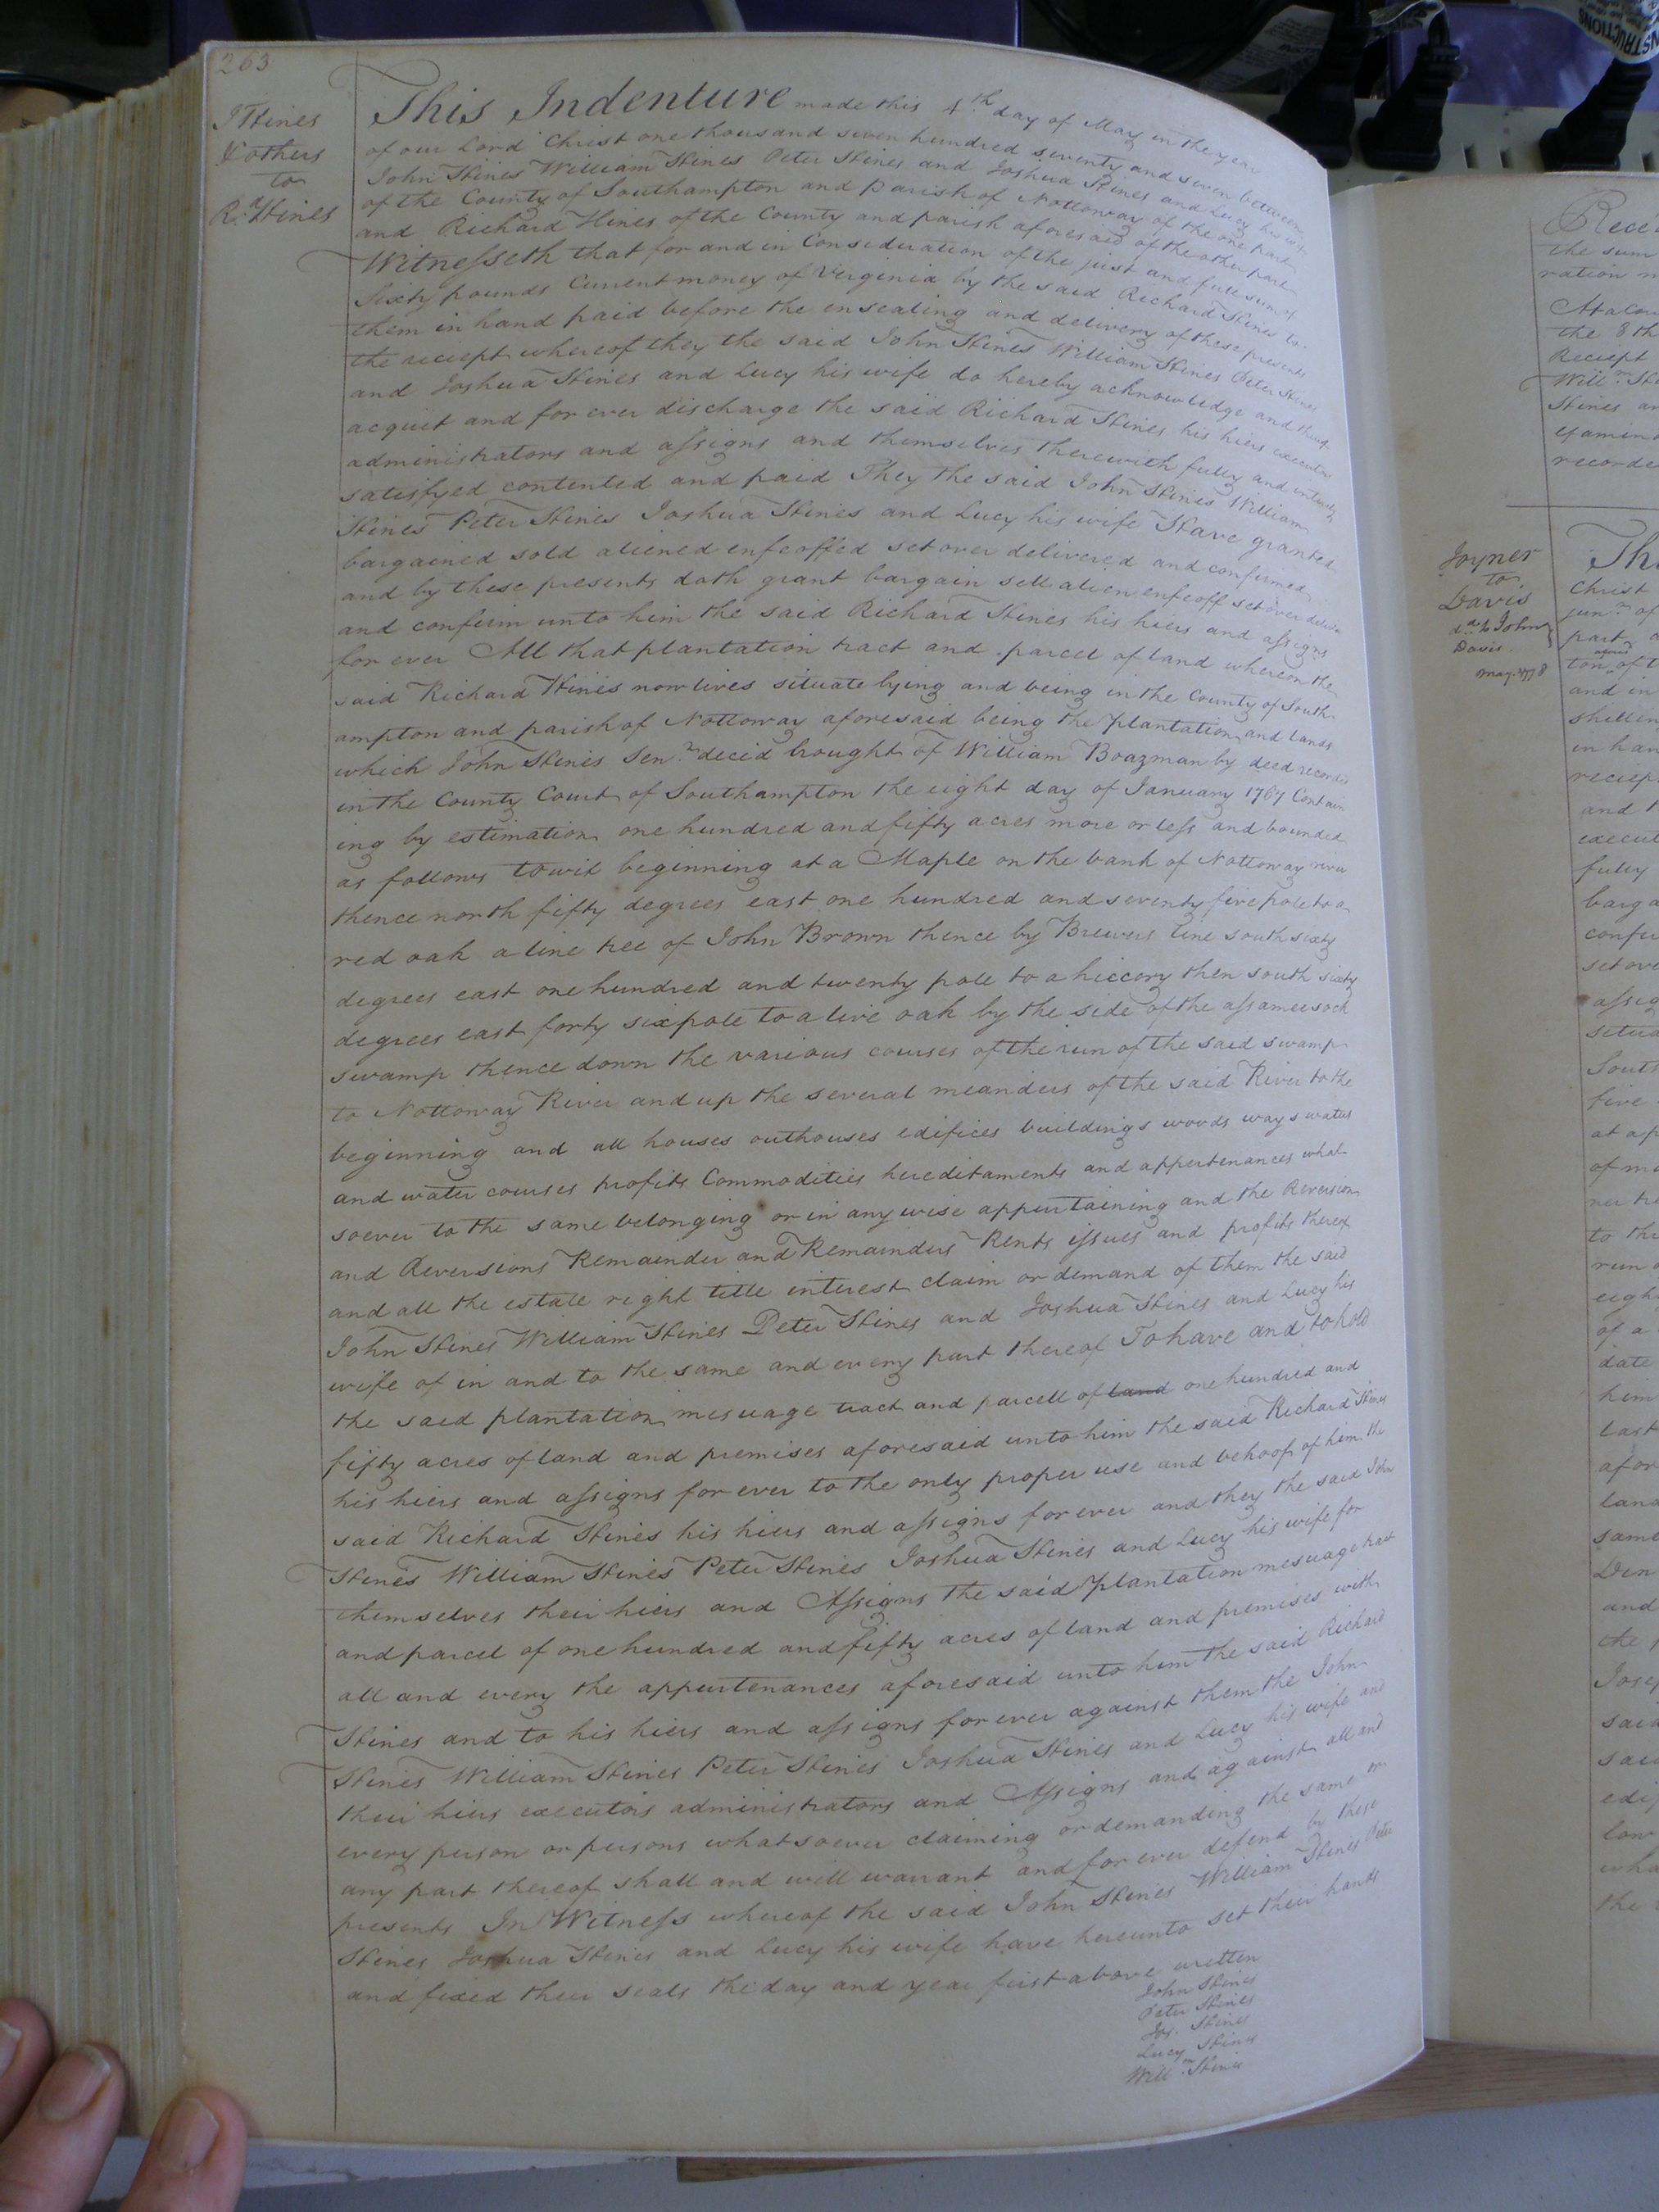 263
J Hines
& others
to
Rd. Hines
This Indenture made this 4th day of May in the year
of our Lord Christ one thousand seven hundred seventy and seven between
John Hines William Hines Peter Hines and Joshua Hines and Lucy his wife
of the County of Southampton and parish of Nottoway of the one part
and Richard Hines of the County and parish aforesaid of the other part
Witnesseth that for and in Consideration of the just and full sum of
Sixty pounds Current money of Virginia by the said Richard Hines to
them in hand paid before the ensealing and delivery of these presents
the reciept whereof they the said John Hines William Hines Peter Hines
and Joshua Hines and Lucy his wife do hereby acknowledge and thereof
acquit and for ever discharge the said Richard Hines his hiers executors
administrators and assigns and themselves therewith fully and intirely
satisfyed contented and paid They the said John Hines William
Hines Peter Hines Joshua Hines and Lucy his wife Have granted
bargained sold aliened enfeoffed set over delivered and confirmed
and by these presents doth grant bargain sell alien enfeoff set over deliver
and confirm unto him the said Richard Hines his hiers and assigns
for ever All that plantation tract and parcel of land whereon the
said Richard Hines now lives situate lying and being in the County of South
ampton and parish of Nottoway aforesaid being the plantation and lands
which John Hines Senr. decid bought of William Boazman by deed recorded
in the County Court of Southampton the eight day of January 1767 Contain
ing by estimation one hundred and fifty acres more or less and bounded
as follows towit beginning at a Maple on the bank of Nottoway river
thence north fifty degrees east one hundred and seventy five pole to a
red oak a line tree of John Brown thence by Brewers line south sixty
degrees east one hundred and twenty pole to a hiccory then south sixty
degrees east forty six pole to a live oak by the side of the assamusock
swamp thence down the various courses of the run of the said swamp
to Nottoway River and up the several meanders of the said River to the
beginning and all houses outhouses edifices buildings woods ways waters
and water courses profits Commodities hereditaments and appertenances what
soever to the same belonging or in any wise appurtaining and the Reversion
and Reversions Remainder and Remainders Rents issues and profits thereof
and all the estate right title interest claim or demand of them the said
John Hines William Hines Peter Hines and Joshua Hines and Lucy his
wife of in and to the same and every part thereof To have and to hold
the said plantation mesuage tract and parcell of land one hundred and
fifty acres of land and premises aforesaid unto him the said Richard Hines
his hiers and assigns for ever to the only proper use and behoof of him the
said Richard Hines his hiers and assigns for ever and they the said John
Hines William Hines Peter Hines Joshua Hines and Lucy his wife for
themselves their hiers and Assigns the said plantation mesuage tract
and parcel of one hundred and fifty acres of land and premises with
all and every the appurtenances aforesaid unto him the said Richard
Hines and to his hiers and assigns for ever against them the John
Hines William Hines Peter Hines Joshua Hines and Lucy his wife and
their hiers executors administrators and Assigns and against all and
every person or persons whatsoever claiming or demanding the same or
any part thereof shall and will warrant and for ever defend by these
presents In Witness whereof the said John Hines William Hines Peter
Hines Joshua Hines and Lucy his wife have hereunto set their hands
and fixed their seals the day and year first above written
John Hines
Peter Hines
Jos. Hines
Lucy Hines
Willm. Hines
the sum
ration
the 8th
Reciept
Willm. Hi
Hines an
examin
recorde
Joyner
to
Davis
do. to John
Davis.
May 1778
Th
Christ
junr. of
part
ton of t
and in
shillin
in han
reciep
and
execut
fully
barga
confir
set ove
assig
situa
South
five
at a p
of m
to th
run
eigh
of a
date
him
last
afor
land
same
and
the
Jose
said
said
edi
low
wha
the